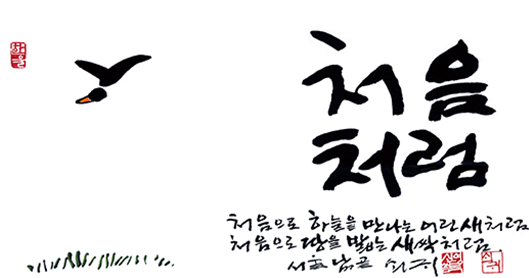 처음
처럼
처음으로 하늘을 만나는 어린 새처럼
처음으로 땅을 밟는 새싹처럼